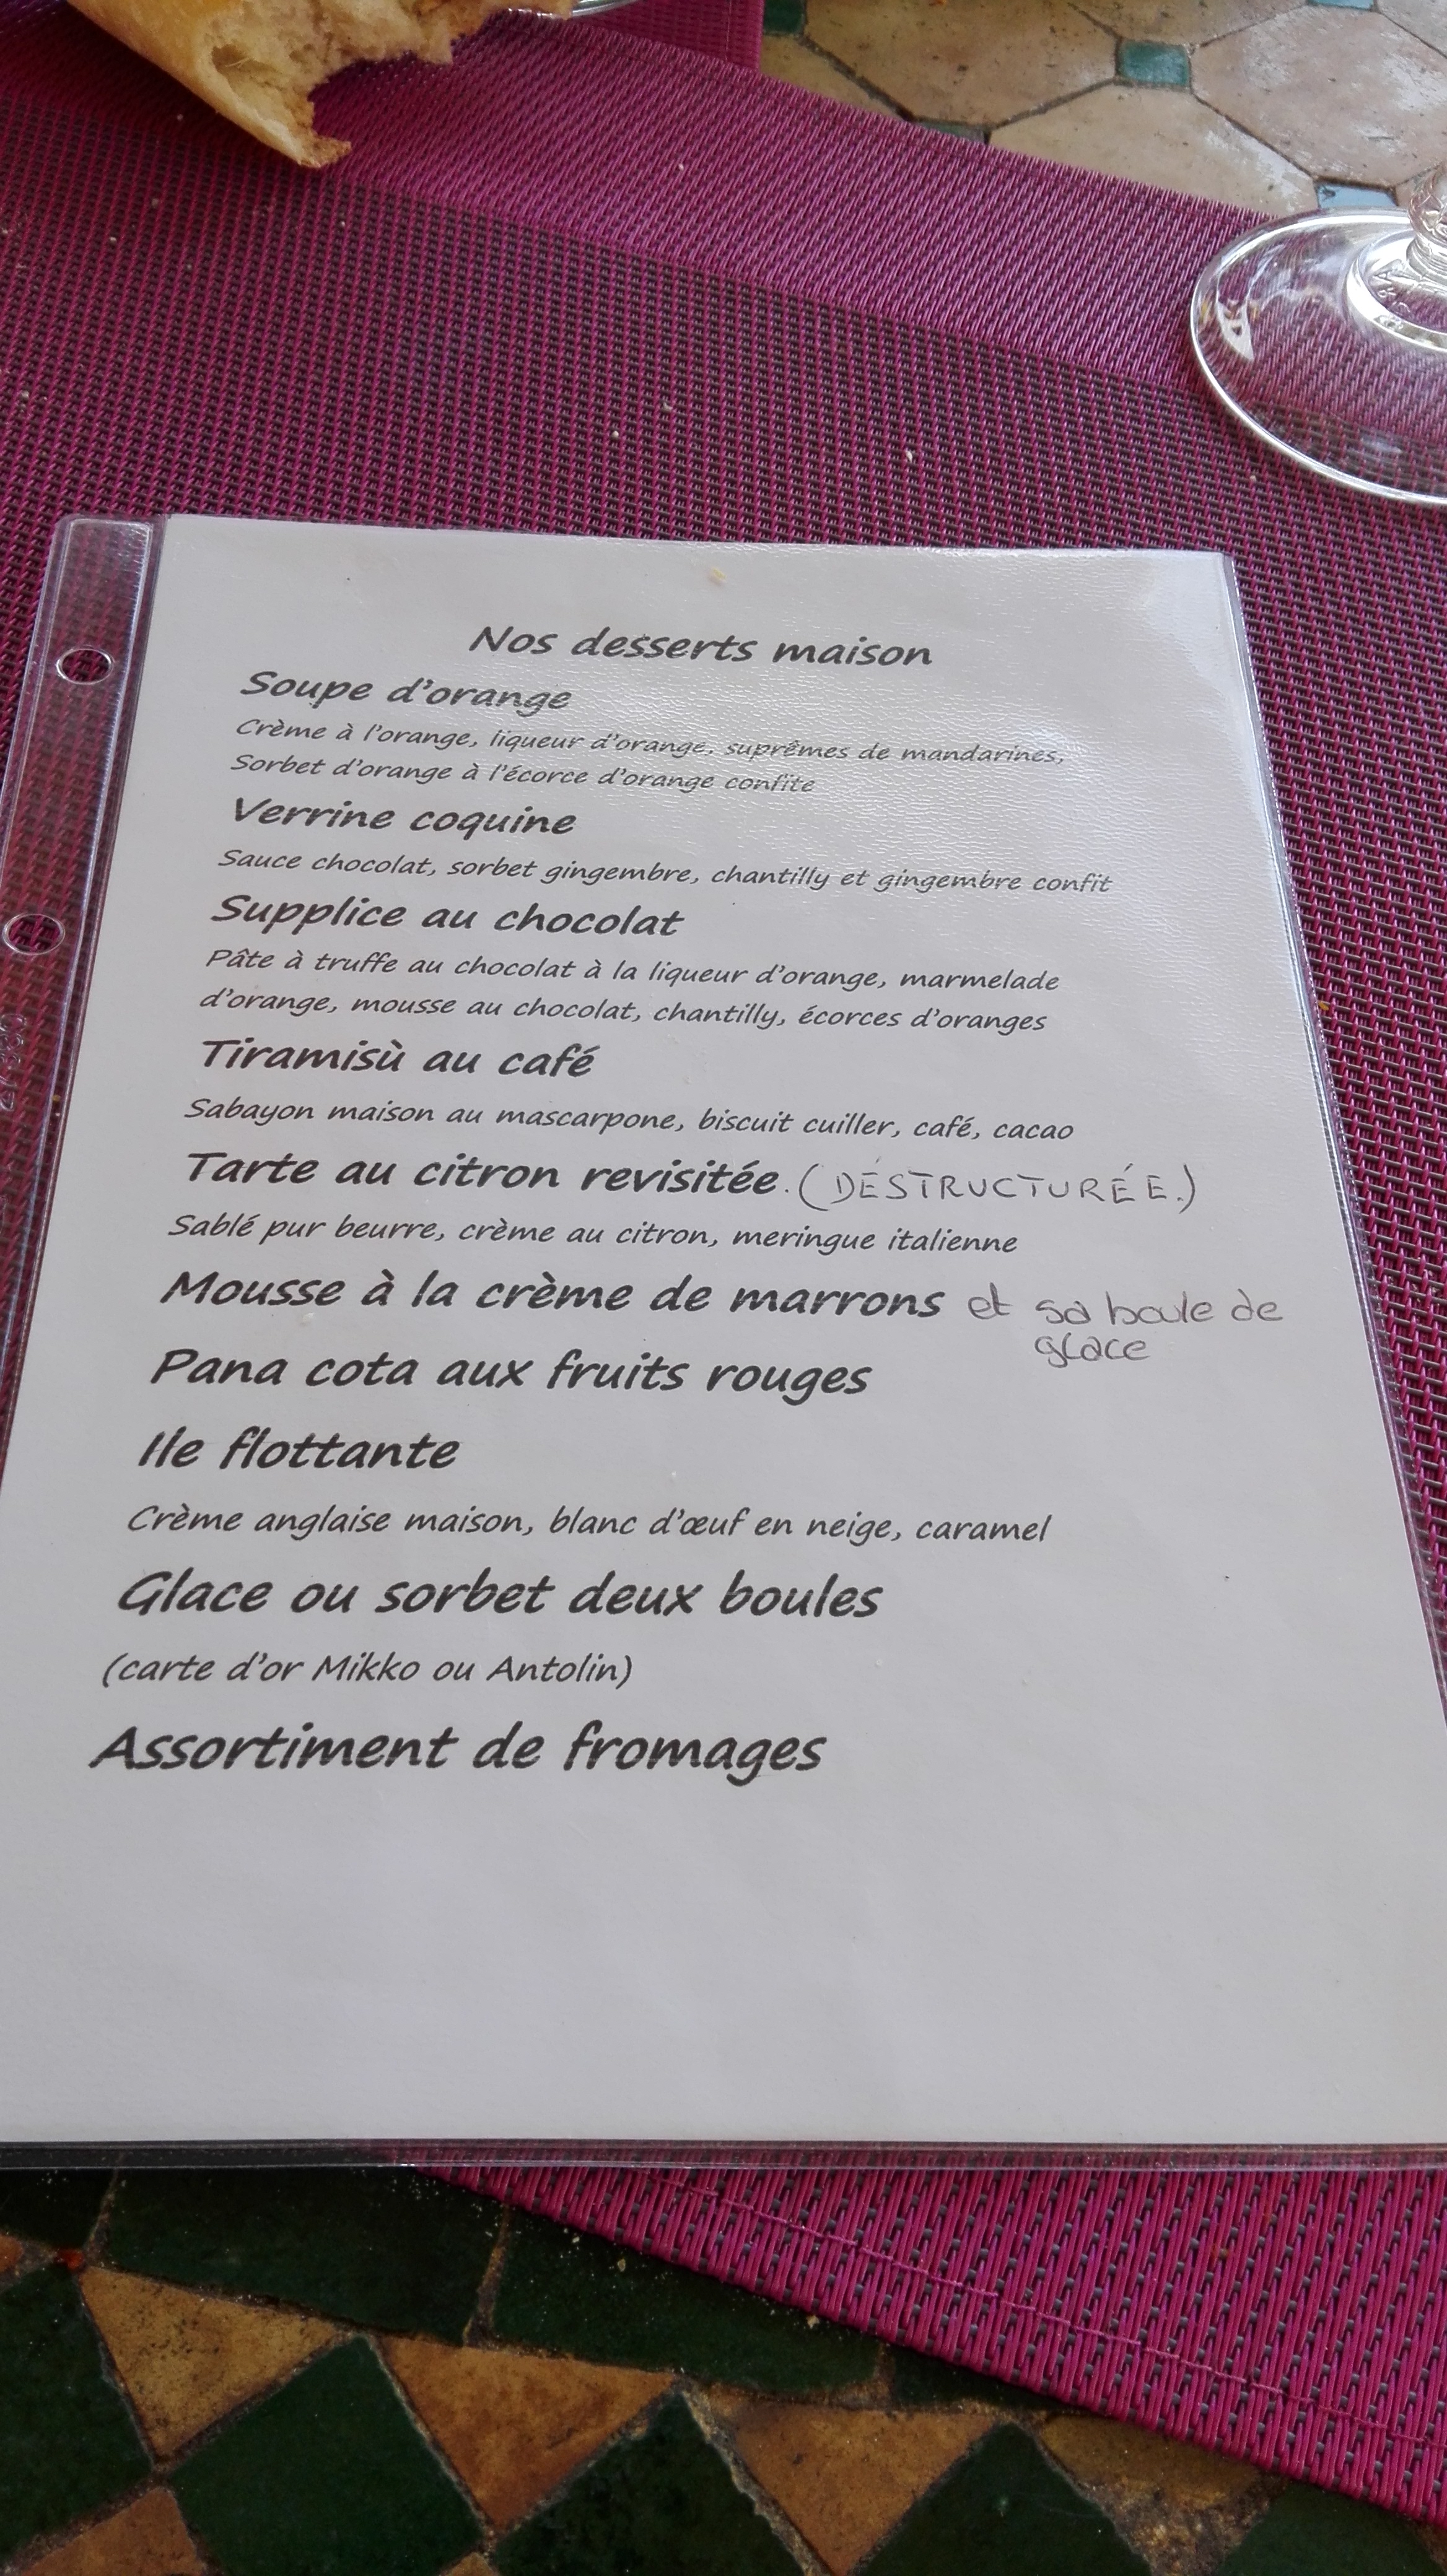 Nos desserts maison
Soupe d'orange
Crème à l'orange, liqueur d'orange, suprêmes de mandarines,
Sorbet d'orange à l'écorce d'orange confite
Verrine coquine
Sauce chocolat, sorbet gingembre, chantilly et gingembre confit
Supplice au chocolat
Pâte à truffe au chocolat à la liqueur d'orange, marmelade
d'orange, mousse au chocolat, chantilly, écorces d'oranges
Tiramisù au café
Sabayon maison au mascarpone, biscuit cuiller, café, cacao
Tarte au citron revisitée. (DÉSTRUCTURÉE.)
Sablé pur beurre, crème au citron, meringue italienne
Mousse à la crème de marrons et sa boule de
glace
Pana cota aux fruits rouges
Ile flottante
Crème anglaise maison, blanc d'œuf en neige, caramel
Glace ou sorbet deux boules
(carte d'or Mikko ou Antolin)
Assortiment de fromages